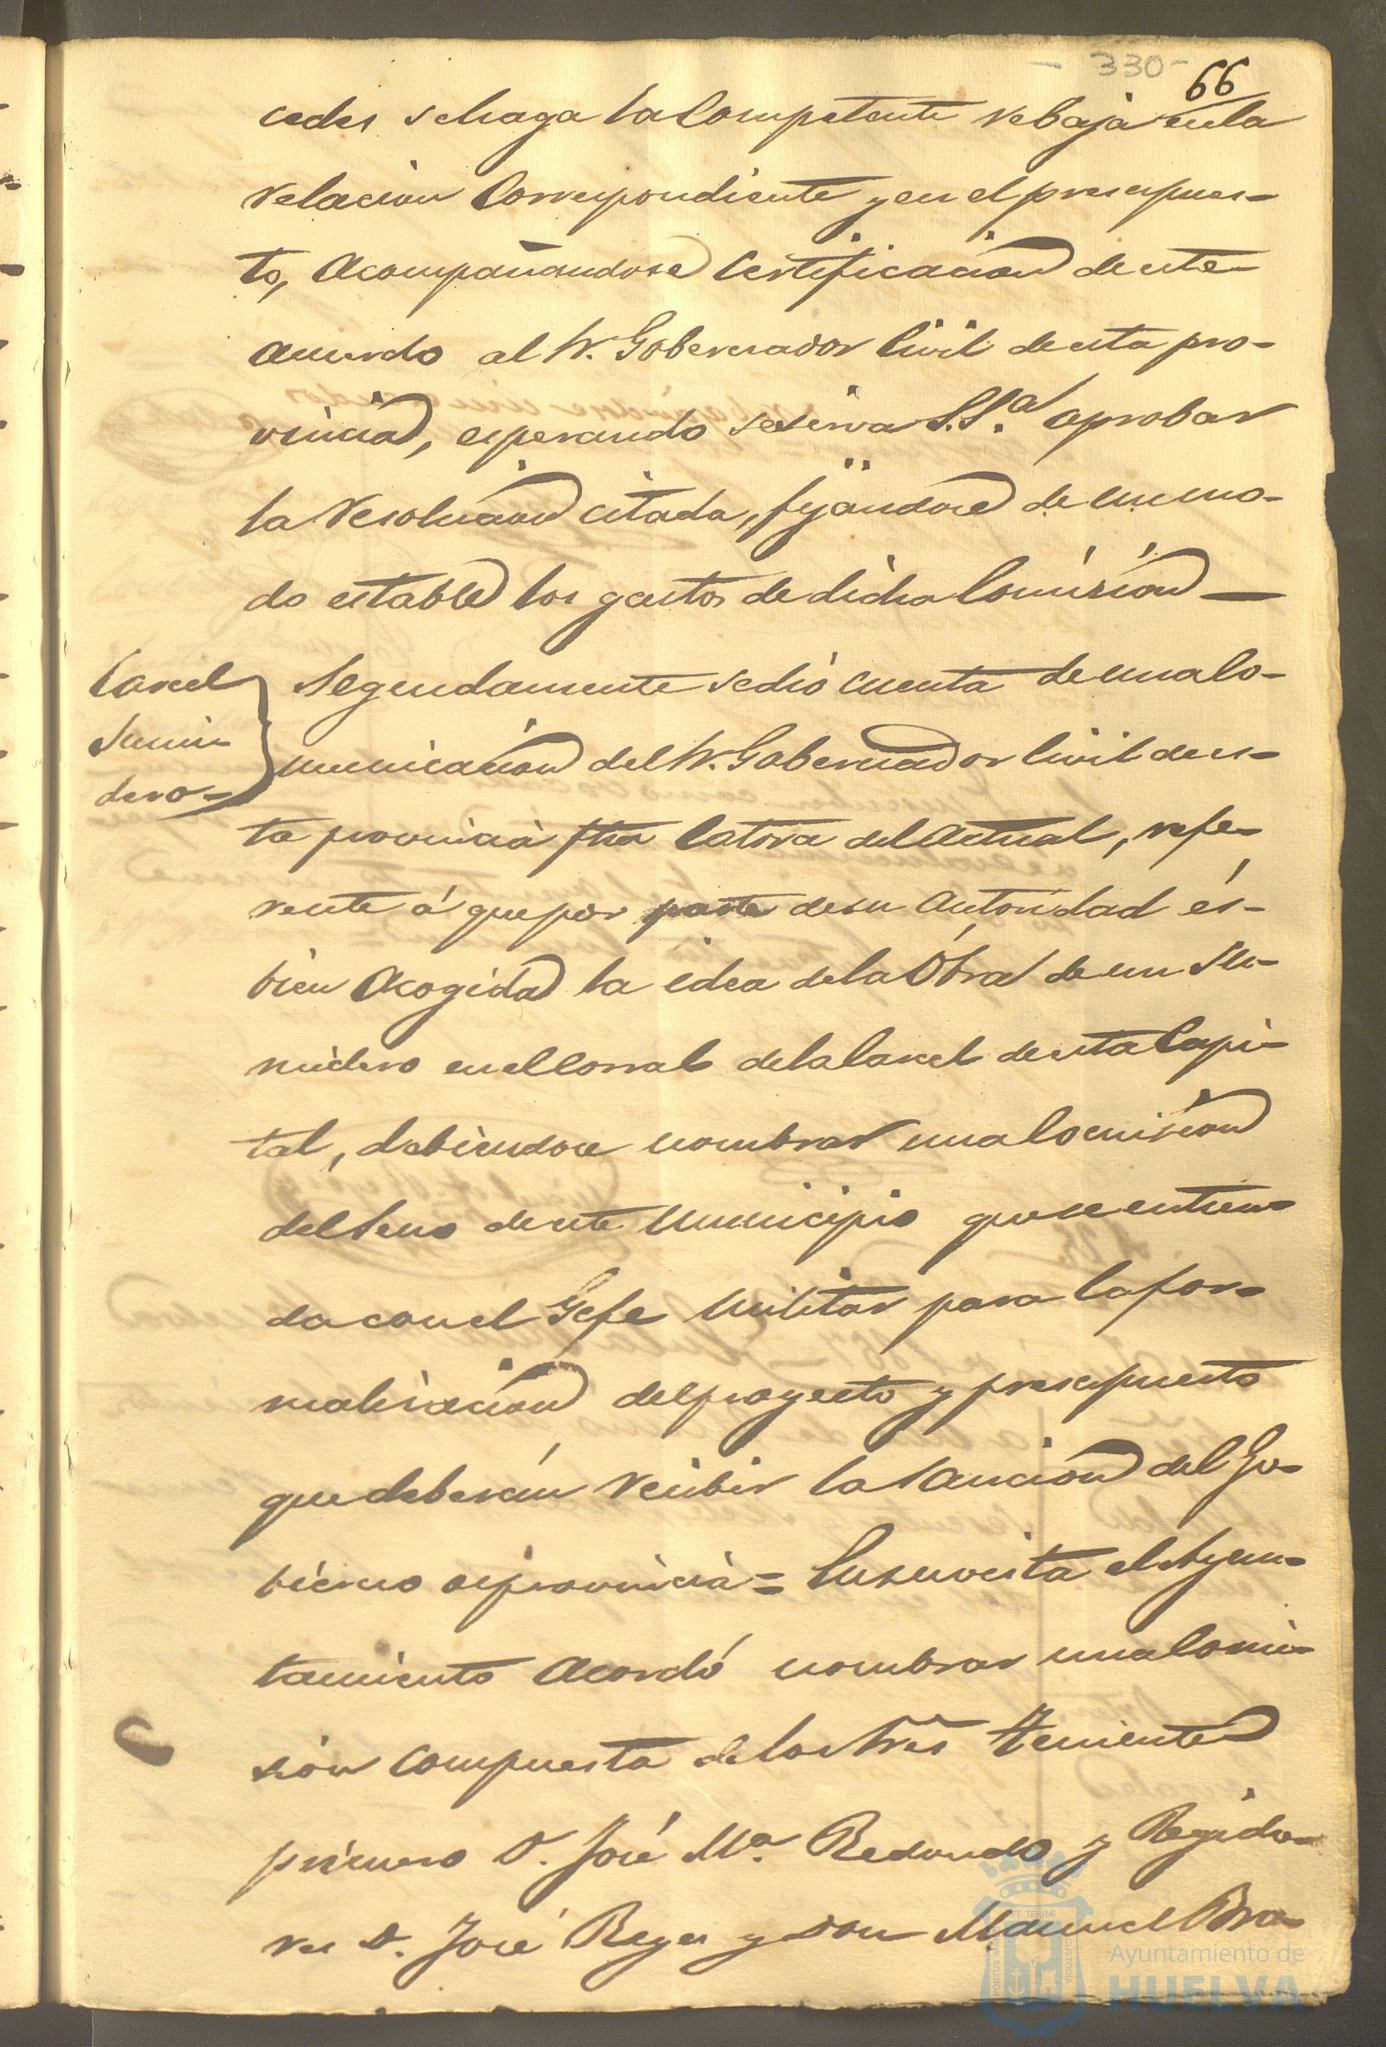 - 330 -
66
cedes se haga la Competente rebaja en la
relacion Correspondiente y en el presupues-
to, Acompañandose Certificacion de este
acuerdo al Sr. Gobernador Civil de esta pro-
vincia, esperando se sirva S.Sª. aprobar
la resolucion citada, fijandose de un mo-
do estable los gastos de dicha Comision —
Carcel
Sumi-
dero
Segundamente se dió cuenta de una Co-
municacion del Sr. Gobernador Civil de es-
ta provincia fha Catorce del Actual, refe-
rente á que por parte de su Autoridad és
bien Acogida la idea de la Obra de un Su-
midero en el Corral de la Carcel de esta Capi-
tal, debiendose nombrar una Comision
del seno de este Municipio que se entien-
da con el Gefe Militar para la for-
malizacion del proyecto y presupuesto
que deberán recibir la sancion del Go-
bierno de provincia = En su vista el Ayun-
tamiento Acordó nombrar una Comi-
sion compuesta de los Sres Teniente
primero D. José Mª. Redondo y Regido-
res D. José Reyes y Don Manuel Bra-
Ayuntamiento de
HUELVA